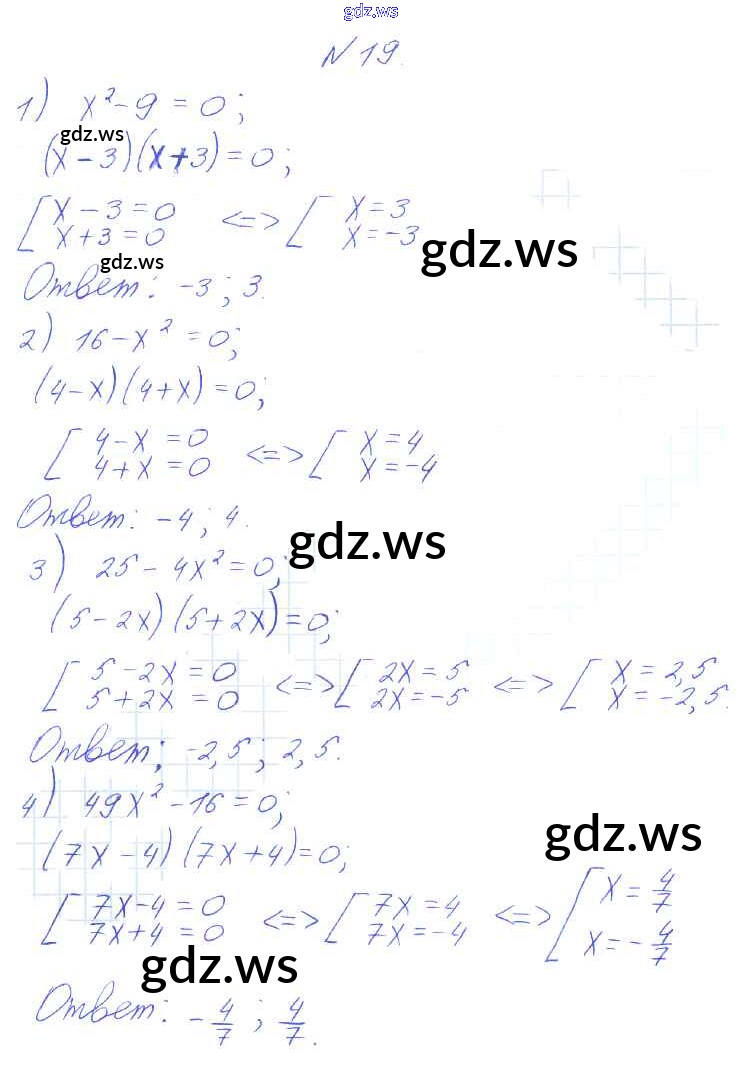 gdz.ws
N 19.
1) x² - 9 = 0;
gdz.ws
(x - 3)(x + 3) = 0;
[ x - 3 = 0 <=> [ x = 3
x + 3 = 0 x = -3
gdz.ws
gdz.ws
Ответ: -3; 3.
2) 16 - x² = 0;
(4 - x)(4 + x) = 0;
[ 4 - x = 0 <=> [ x = 4
4 + x = 0 x = -4
Ответ: -4; 4.
gdz.ws
3) 25 - 4x² = 0;
(5 - 2x)(5 + 2x) = 0;
[ 5 - 2x = 0 <=> [ 2x = 5 <=> [ x = 2,5
5 + 2x = 0 2x = -5 x = -2,5.
Ответ: -2,5; 2,5.
4) 49x² - 16 = 0;
gdz.ws
(7x - 4)(7x + 4) = 0;
[ 7x - 4 = 0 <=> [ 7x = 4 <=> [ x = 4/7
7x + 4 = 0 7x = -4 x = -4/7
gdz.ws
Ответ: -4/7; 4/7.